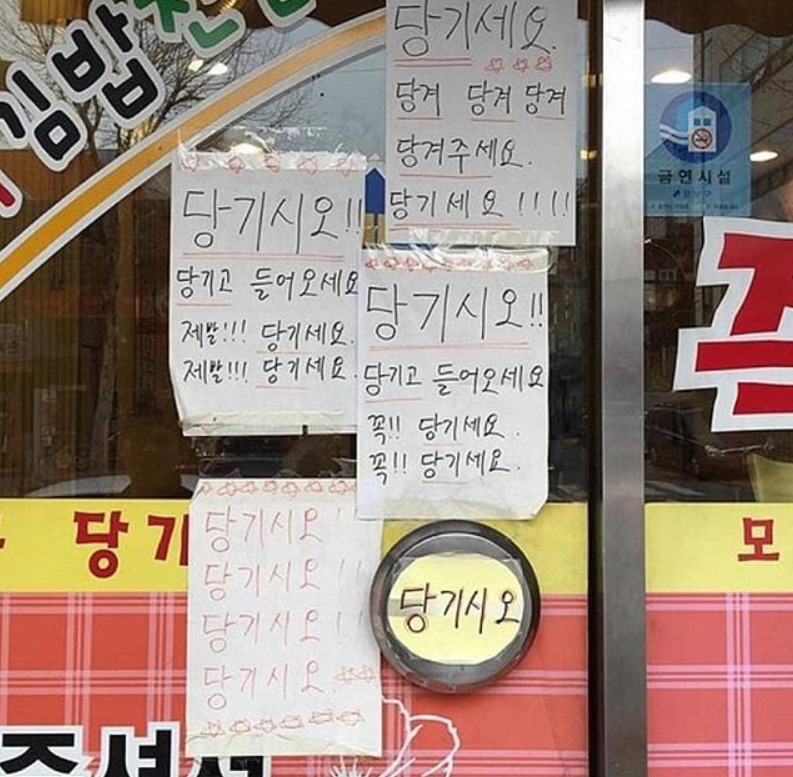 김밥천
당기세요.
당겨 당겨 당겨
당겨주세요.
당기세요!!!!
금연시설
당기시오!!
당기고 들어오세요
제발!!! 당기세요.
제발!!! 당기세요.
당기시오!!
당기고 들어오세요
꼭!! 당기세요.
꼭!! 당기세요.
당기
모
당기시오!
당기시오!!
당기시오!!
당기시오
당기시오
주셔서